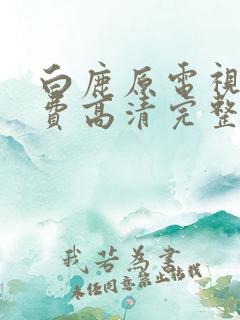 白鹿原電視
費高清完整
我若為書
未经同意禁止转载